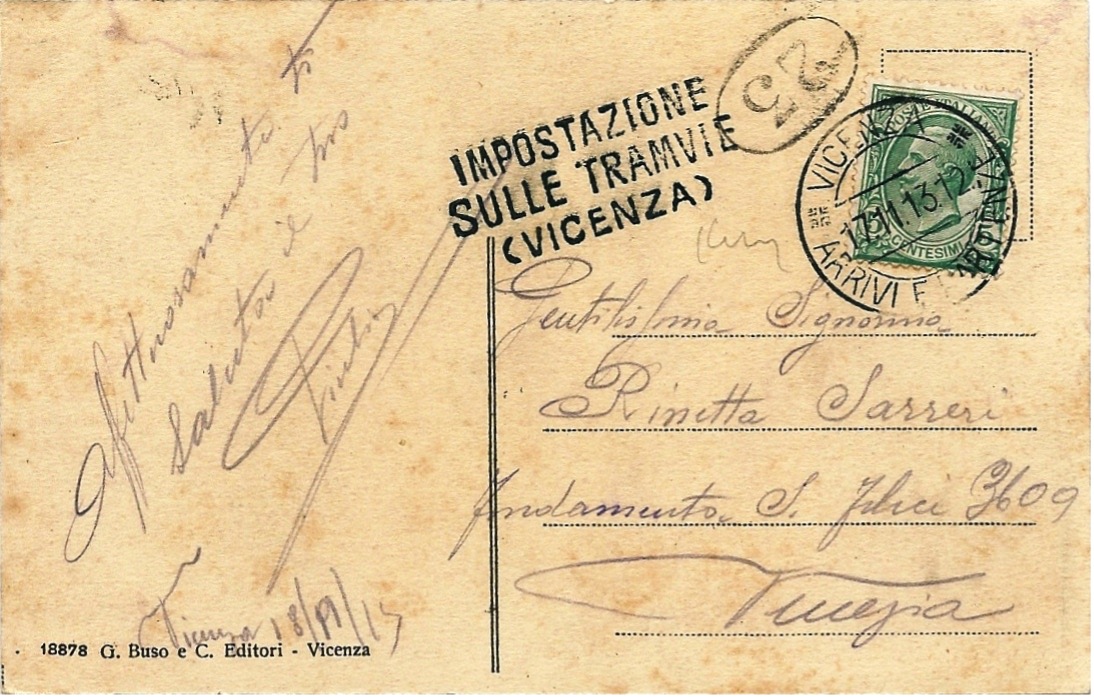 IMPOSTAZIONE
SULLE TRAMVIE
(VICENZA)
25
VICENZA
17.11.13.12
ARRIVI E PARTENZE
POSTE ITALIANE
CENTESIMI
Affettuosamente ti
saluta il tuo
Gentilissima Signorina
Rinetta Sarreri
Fondamenta S. Felice 3609
Venezia
Vicenza 18/11/13
18878 G. Buso e C. Editori - Vicenza